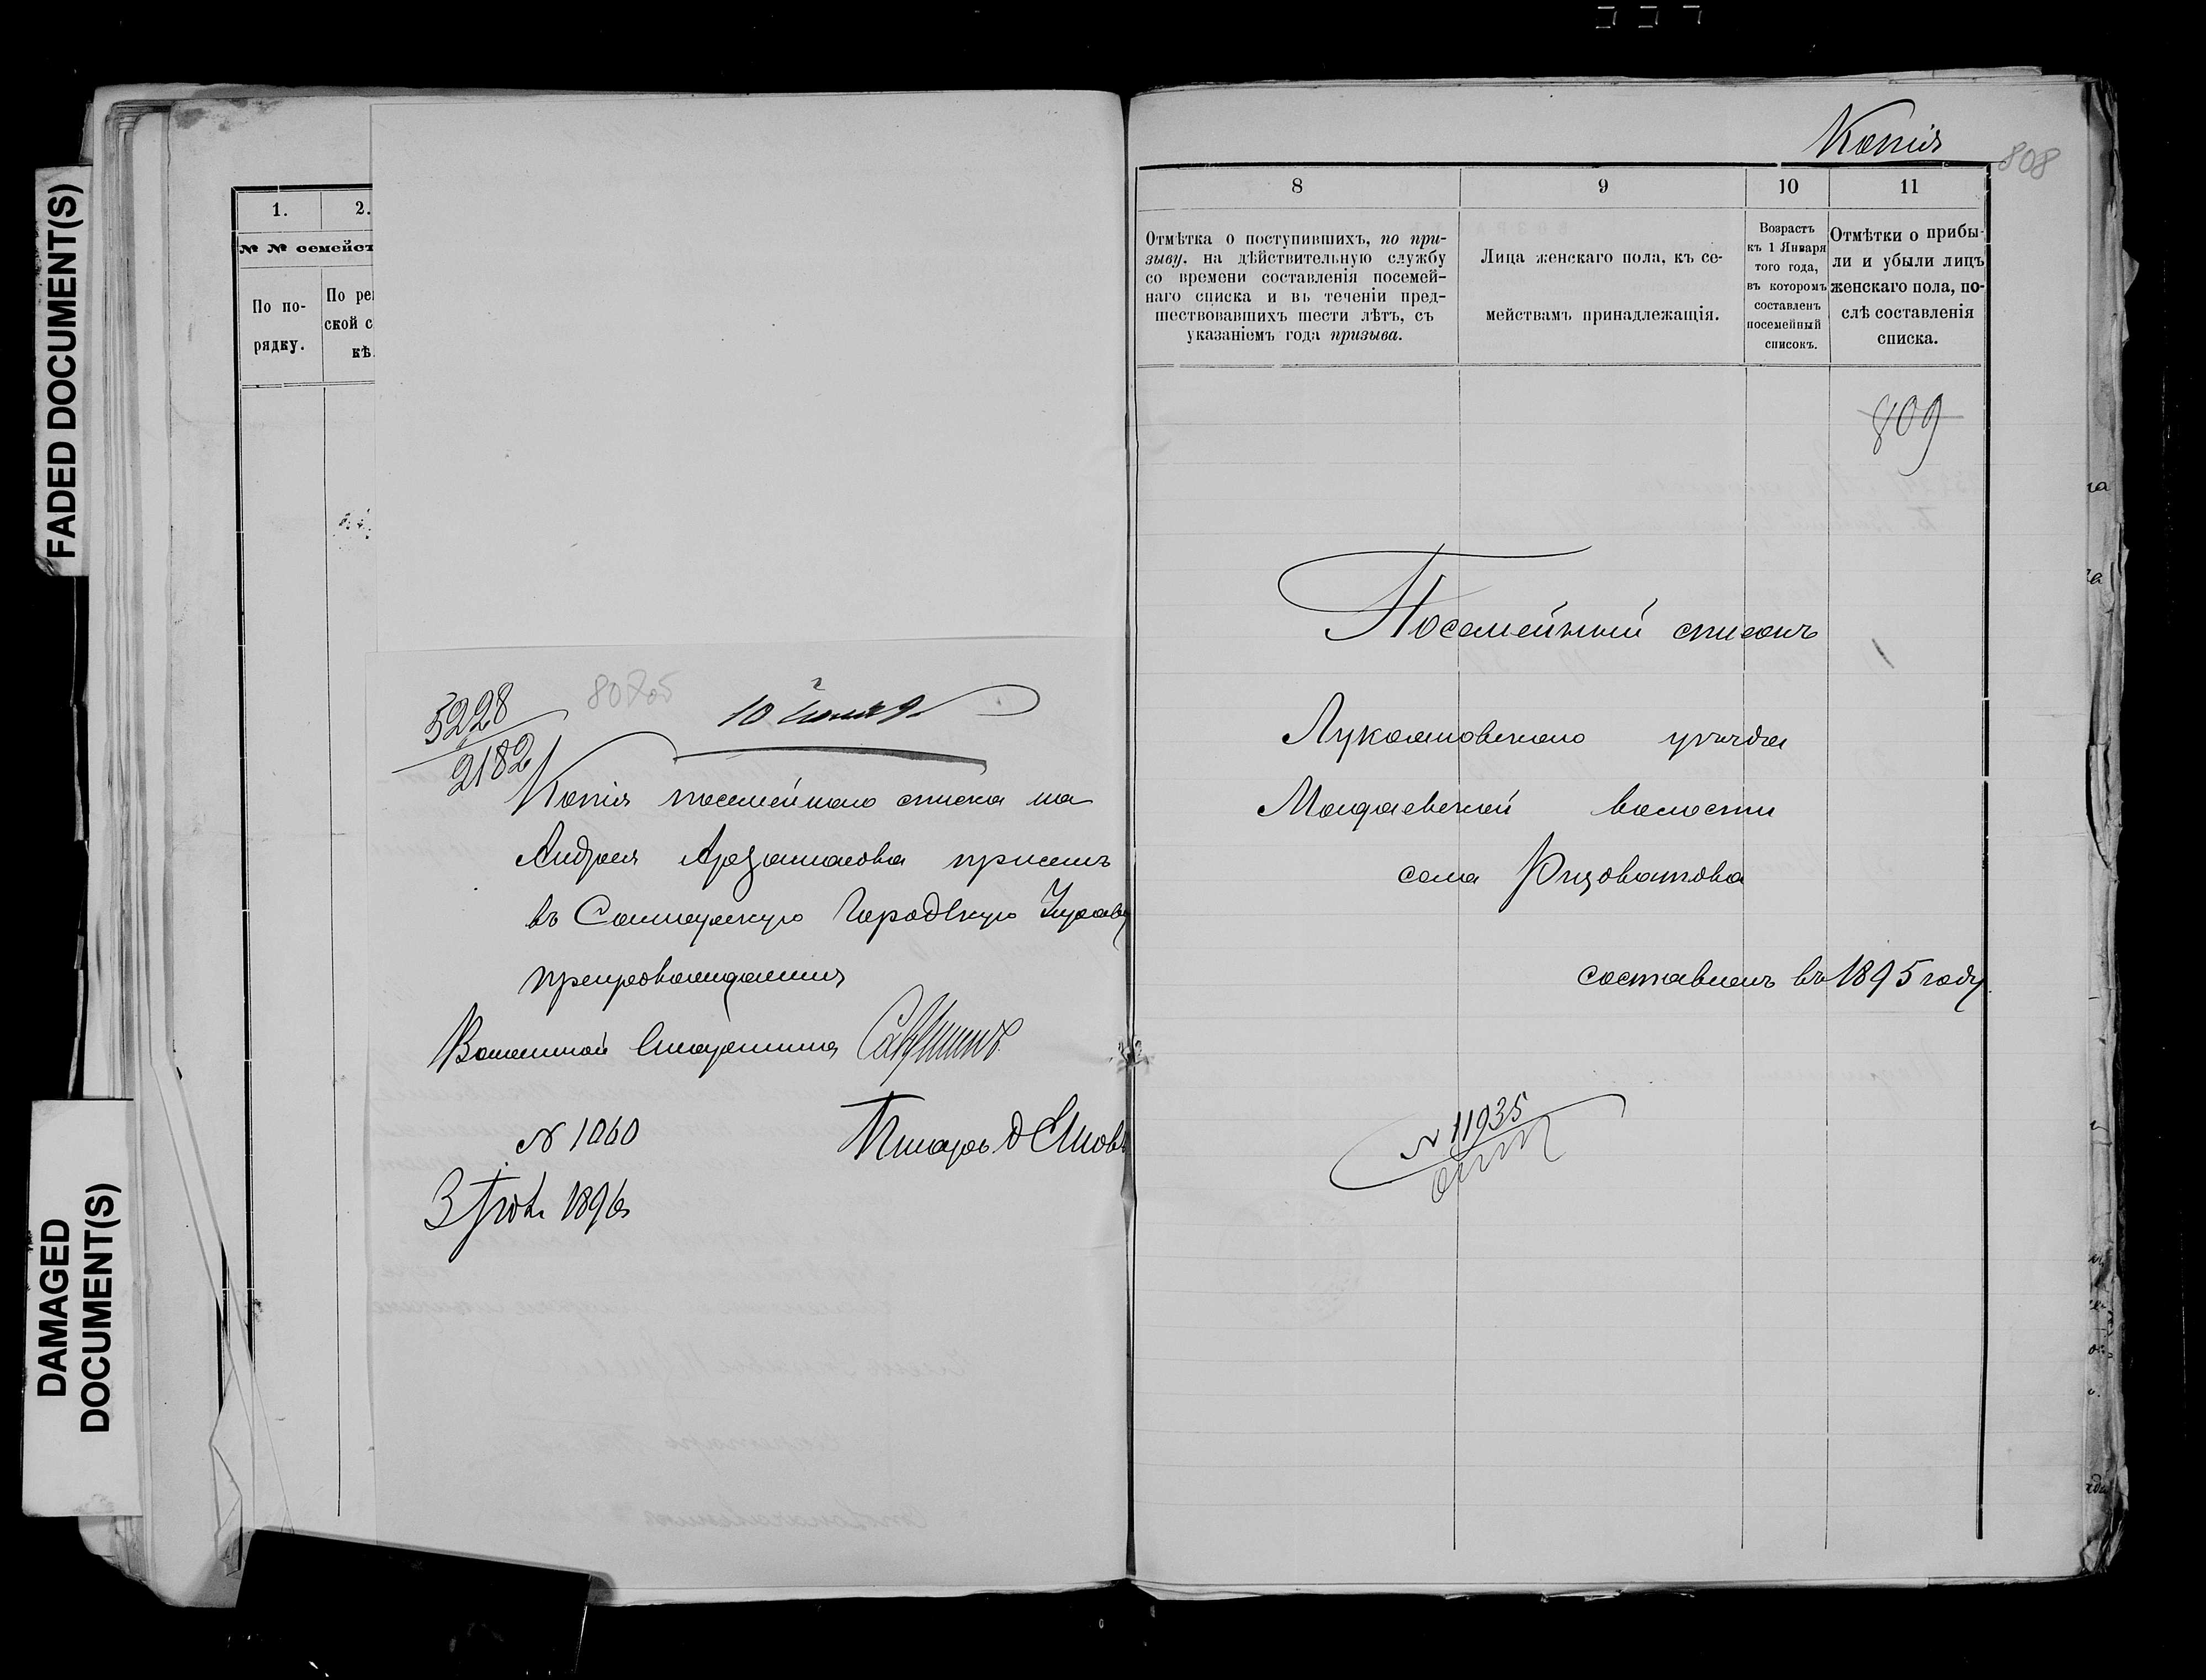 FADED DOCUMENT(S)
DAMAGED
DOCUMENT(S)
1.
2.
№ № семейст
По по-
рядку.
По ре
ской с
кѣ.
5228
2182
10 Іюня 9
Копія посемейнаго списка на
Андрея Арзамасова при семъ
въ Самарскую Городскую Управу
препровождается
Волостной Старшина
№ 1060
Писарь
1896
Копія
808
8
9
10
11
Отмѣтка о поступившихъ, по при-
зыву, на дѣйствительную службу
со времени составленія посемей-
наго списка и въ теченіи пред-
шествовавшихъ шести лѣтъ, съ
указаніемъ года призыва.
Лица женскаго пола, къ се-
мействамъ принадлежащія.
Возрастъ
къ 1 Января
того года,
въ которомъ
составленъ
посемейный
списокъ.
Отмѣтки о прибы-
ли и убыли лицъ
женскаго пола, по-
слѣ составленія
списка.
809
Посемейный списокъ
Лукояновскаго уѣзда
Мадаевской волости
села Ризоватова
составленъ въ 1895 году.
№ 11935